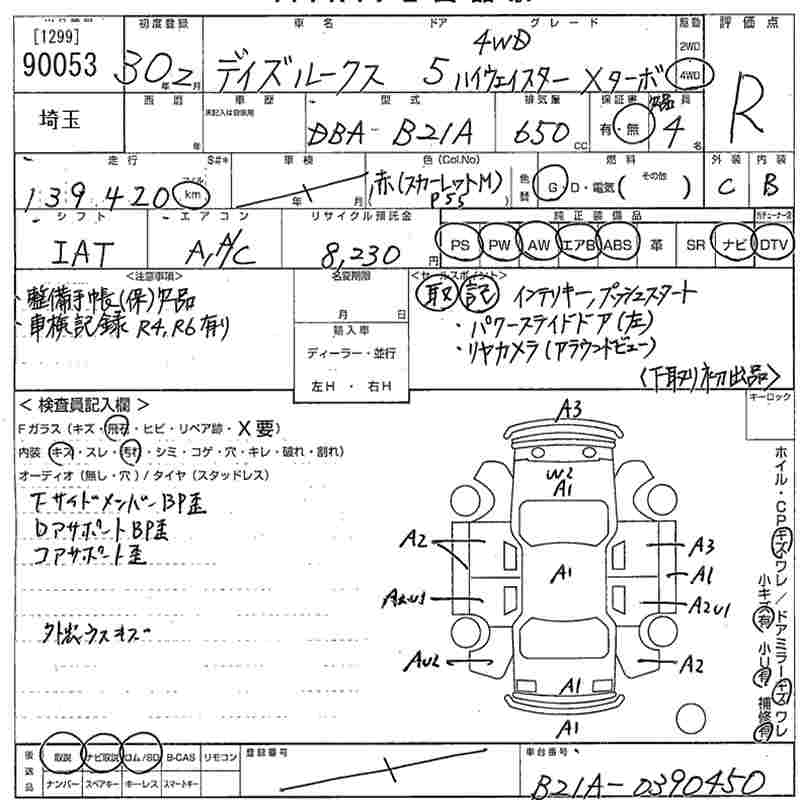 [1299]
90053
初度登録
30年2月
車名
デイズルークス
ドア
5
グレード
4WD
ハイウェイスター Xターボ
駆動
2WD
4WD
評価点
R
埼玉
西暦
年
車歴
未記入は自家用
型式
DBA-B21A
排気量
650CC
保証書
有・無
欠品
4名
走行
139,420
マイル
km
S#*
車検
年 月
色(Col.No)
赤(スカーレットM)
P55
色替
燃料
G・D・電気( その他 )
外装
C
内装
B
シフト
IAT
エアコン
A,A/C
リサイクル預託金
8,230円
純正装備品
PS PW AW エアB ABS 革 SR ナビ DTV
<注意事項>
・整備手帳(保)欠品
・車検記録 R4,R6有り
名変期限
月 日
輸入車
ディーラー・並行
左H・右H
<セールスポイント>
取 記 インテリキー,プッシュスタート
・パワースライドドア(左)
・リヤカメラ(アラウンドビュー)
〈下取り初出品〉
キーロック
< 検査員記入欄 >
Fガラス(キズ・飛石・ヒビ・リペア跡・X要)
内装(キズ・スレ・汚れ・シミ・コゲ・穴・キレ・破れ・割れ)
オーディオ(無し・穴)/タイヤ(スタッドレス)
下サイドメンバーBP歪
Dアサポート BP歪
コアサポート歪
外装ウスキズ
A3
W2
A1
A2
A3
A1
A1
A2U1
AU2
A2
A1
A1
ホイル・CPキズワレ/ドアミラーキズワレ
小キズ有 小U有 補修有
後送品
取説 ナビ取説 ロム/SD B-CAS リモコン
ナンバー スペアキー キーレス スマートキー
登録番号
車台番号
B21A-0390450